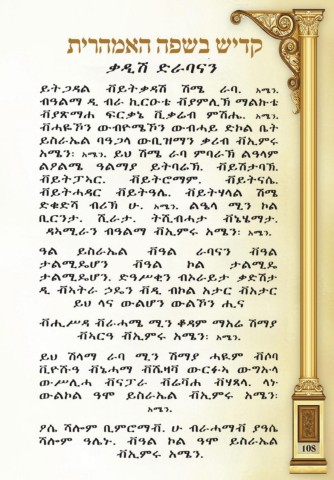 קדיש בשפה האמהרית
ቃዲሽ ድራባናን
ይትጋዳል ቭይትቃዳሽ ሽሜ ራባ. አሜን.
ብዓልማ ዲ ብራ ኪርዑቴ ቭያምሊኽ ማልኩቴ
ቭያጽማሕ ፍርቃኔ ቪቃሬብ ምሽሔ. አሜን.
ብሓዬኾን ውብዮሜኾን ውብሓይ ድኮል ቤት
ይስራኤል ባዓጋላ ውቢዝማን ቃሪብ ቭኢምሩ
አሜን፡ አሜን. ይህ ሽሜ ራባ ምባራኽ ልዓላም
ልዖልሜ ዓልማያ ይትባሬኽ. ቭይሽታባኽ.
ቭይትፓኣር. ቭይትሮማም. ቭይትናሴ.
ቭይትሓዳር ቭይትዓሌ. ቭይትሃላል ሽሜ
ድቁድሻ ብሪኽ ሁ. አሜን. ልዔላ ሚን ኮል
ቢርኻታ. ሺራታ. ትሺብሓታ ቭኔሄማታ.
ዳአሚራን ብዓልማ ቭኢምሩ አሜን፡ አሜን.
ዓል ይስራኤል ቭዓል ራባናን ቭዓል
ታልሚዴሆን ቭዓል ኮል ታልሚዴ
ታልሚዴሆን. ድዓሥቀን ብኦራይታ ቃድሽታ
ዲ ቭኣትራ ኃዴን ቭዲ ብኮል ኣታር ቭኣታር
ይህ ላና ውልሆን ውልኾን ሒና
ቭሒሥዳ ቭራሓሜ ሚን ቆዳም ማአሬ ሽማያ
ቭኣርዓ ቭኢምሩ አሜን፡ አሜን.
ይህ ሽላማ ራባ ሚን ሽማያ ሓዪም ቭሶባ
ቪዮሹዓ ቭኔሓማ ቭሼዛቫ ውርፉኣ ውግኡላ
ውሥሊሓ ቭናፓራ ቭሬቫሕ ቭሃጸላ. ላኑ
ውልኮል ዓሞ ይስራኤል ቭኢምሩ አሜን፡
አሜን.
ዖሴ ሻሎም ቢምሮማቭ. ሁ ብራሓማቭ ያዓሴ
ሻሎም ዓሌኑ. ቭዓል ኮል ዓሞ ይስራኤል
ቭኢምሩ አሜን.
108